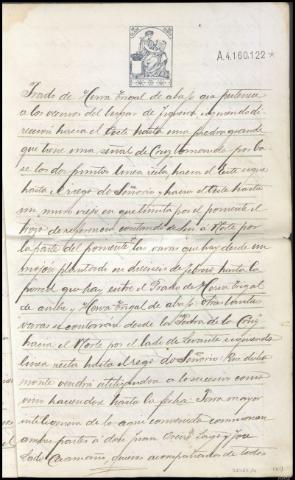 A.4.160.122*
Prado de Herva Trigal de abajo qe pertenece
a los vecinos del lugar de Figueira siguiendo di-
rección hacia el Este hasta una piedra grande
que tiene una señal de Cruz tomando por ba-
se los dos puntos linea recta hacia el Este sigue
hasta el riego de Señorio y hacia el Oeste hasta
un muro viejo en que limita por el poniente el
de referencia contando de Sur a Norte por
la parte del poniente las varas que hay desde un
mojón plantado en hasta la
pared que hay entre el Prado de Herva Trigal
de arriba y Herva Trigal de abajo. Otras tantas
varas se contaran desde la Piedra de la Cruz
hacia el Norte por el lado de Levante siguiendo
linea recta hasta el riego de Señorio. Por dicho
monte vendrá utilizandose a lo sucesivo como
van haciendo hasta la fecha. Para mayor
inteligencia de lo aqui convenido nombraron
ambas partes a don Juan Lago y Jose
Lado Caamaño, quienes acompañados de todos